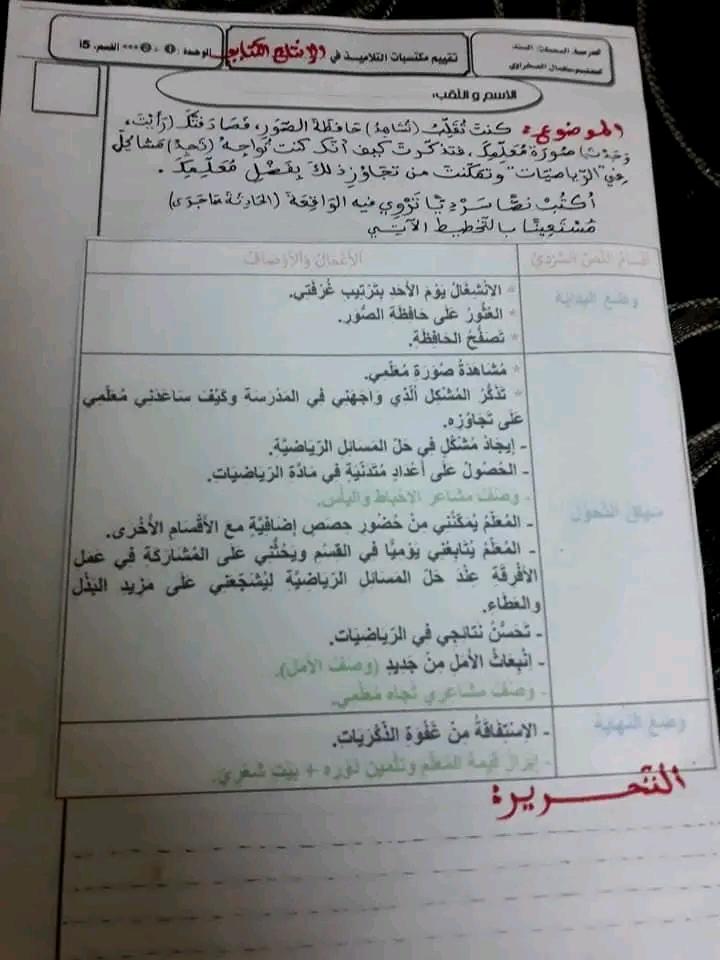 المدرسة
تقييم مكتسبات التلاميذ في الإنتاج الكتابي
الوحدة: القسم: 5أ
الاسم واللقب:
الموضوع: كنتَ تُقلّبُ (تُشاهِدُ) حافظةَ الصّورِ، فصادفتكَ (رَأَيْتَ،
وَجَدْتَ) صورةُ مُعلّمِكَ. فتذكّرتَ كيف أنّك كنت تُواجِهُ (تَجِدُ) مشاكلَ
في "الرّياضيّات" وتمكّنتَ من تجاوُزِ ذلكَ بِفَضْلِ مُعَلِّمِكَ.
أكْتُبُ نَصًّا سَرْدِيًّا تَرْوِي فيه الواقِعةَ (الحادِثةَ مَا جَرَى)
مُسْتَعِينًا بالتخطيطِ الآتِي
أقسامُ النّصّ السَّرْدِيّ
الأعْمَالُ وَالأَوْصَافُ
وضع البداية
* الاِنْشِغَالُ يَوْمَ الأَحَدِ بِتَرْتِيبِ غُرْفَتِي.
* العُثُورُ عَلَى حَافِظَةِ الصُّوَرِ.
* تَصَفُّحُ الحَافِظَةِ.
سياق التحول
* مُشَاهَدَةُ صُورَةِ مُعَلِّمِي.
* تَذَكُّرُ المُشْكِلِ الّذِي وَاجَهَنِي فِي المَدْرَسَةِ وَكَيْفَ سَاعَدَنِي مُعَلِّمِي
عَلَى تَجَاوُزِهِ.
- إِيجَادُ مُشْكَلٍ فِي حَلِّ المَسَائِلِ الرِّيَاضِيَّةِ.
- الحُصُولُ عَلَى أَعْدَادٍ مُتَدَنِّيَةٍ فِي مَادَّةِ الرِّيَاضِيَاتِ.
- وصف مشاعر الإحباط واليأس.
- المُعَلِّمُ يُمَكِّنُنِي مِنْ حُضُورِ حِصَصٍ إِضَافِيَّةٍ مَعَ الأَقْسَامِ الأُخْرَى.
- المُعَلِّمُ يُتَابِعُنِي يَوْمِيًّا فِي القِسْمِ وَيَحُثُّنِي عَلَى المُشَارَكَةِ فِي عَمَلِ
الأَفْرِقَةِ عِنْدَ حَلِّ المَسَائِلِ الرِّيَاضِيَّةِ لِيُشَجِّعَنِي عَلَى مَزِيدِ البَذْلِ
وَالعَطَاءِ.
- تَحَسُّنُ نَتَائِجِي فِي الرِّيَاضِيَاتِ.
- اِنْبِعَاثُ الأَمَلِ مِنْ جَدِيدٍ (وصف الأمل).
- وصف مشاعري تجاه معلمي.
وضع النهاية
- الاِسْتِفَاقَةُ مِنْ غَفْوَةِ الذِّكْرَيَاتِ.
- إبراز قيمة المعلّم وتثمين دَوْرِهِ + بَيْت شعري.
التّحرير: